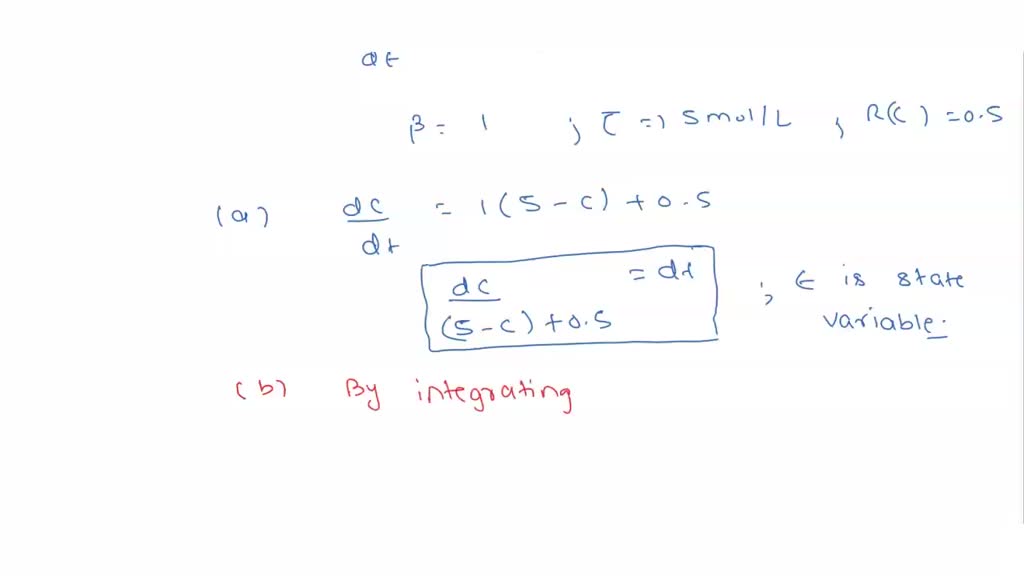 dt
β = 1 ; C̅ => 5 mol/L , R(C) = 0.5
(a) dc/dt = 1(5 - c) + 0.5
dc/(5-c)+0.5 = dt ; t is state variable.
(b) By integrating